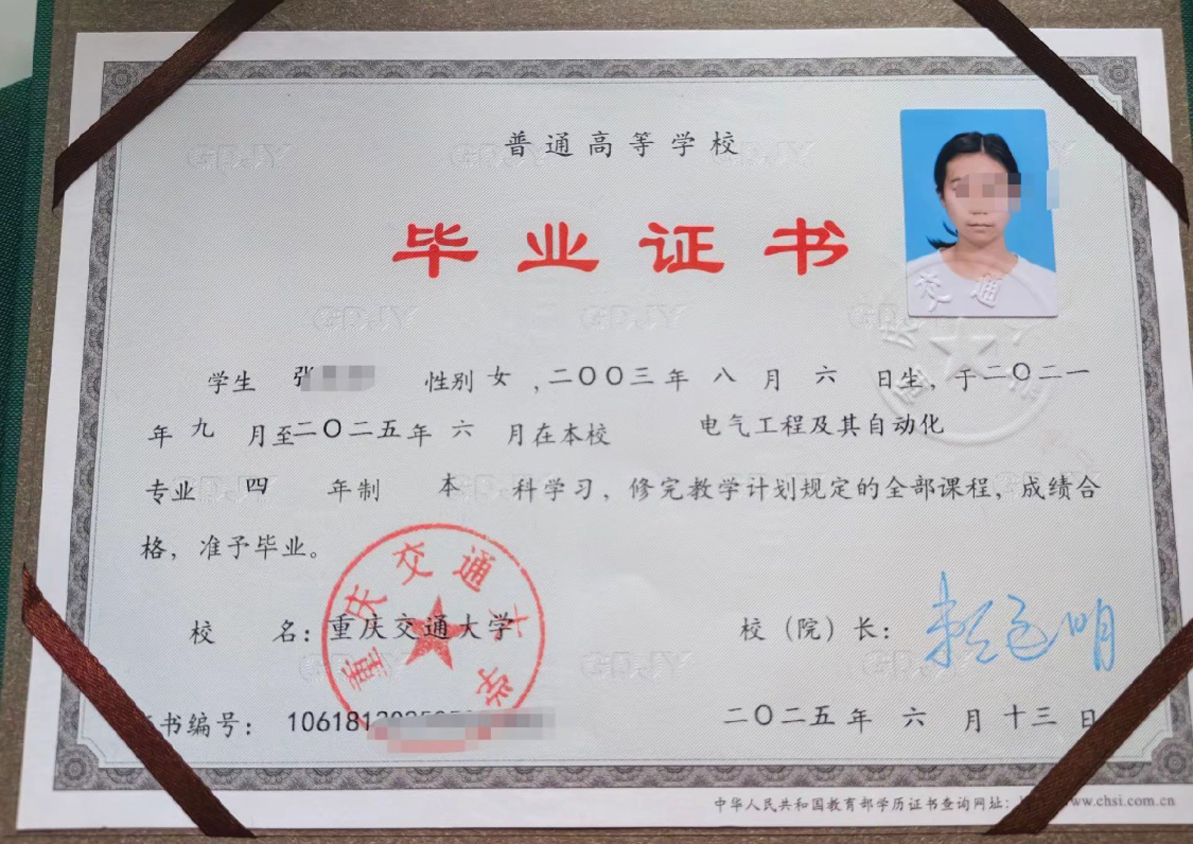 普通高等学校
毕业证书
学生 张 性别 女 ,二〇〇三年 八 月 六 日生,于二〇二一
年 九 月至二〇二五年 六 月在本校 电气工程及其自动化
专业 四 年制 本 科学习,修完教学计划规定的全部课程,成绩合
格,准予毕业。
校 名:重庆交通大学
重庆交通大学
校(院)长:
书编号:
二〇二五年 六 月 十三 日
中华人民共和国教育部学历证书查询网址: www.chsi.com.cn